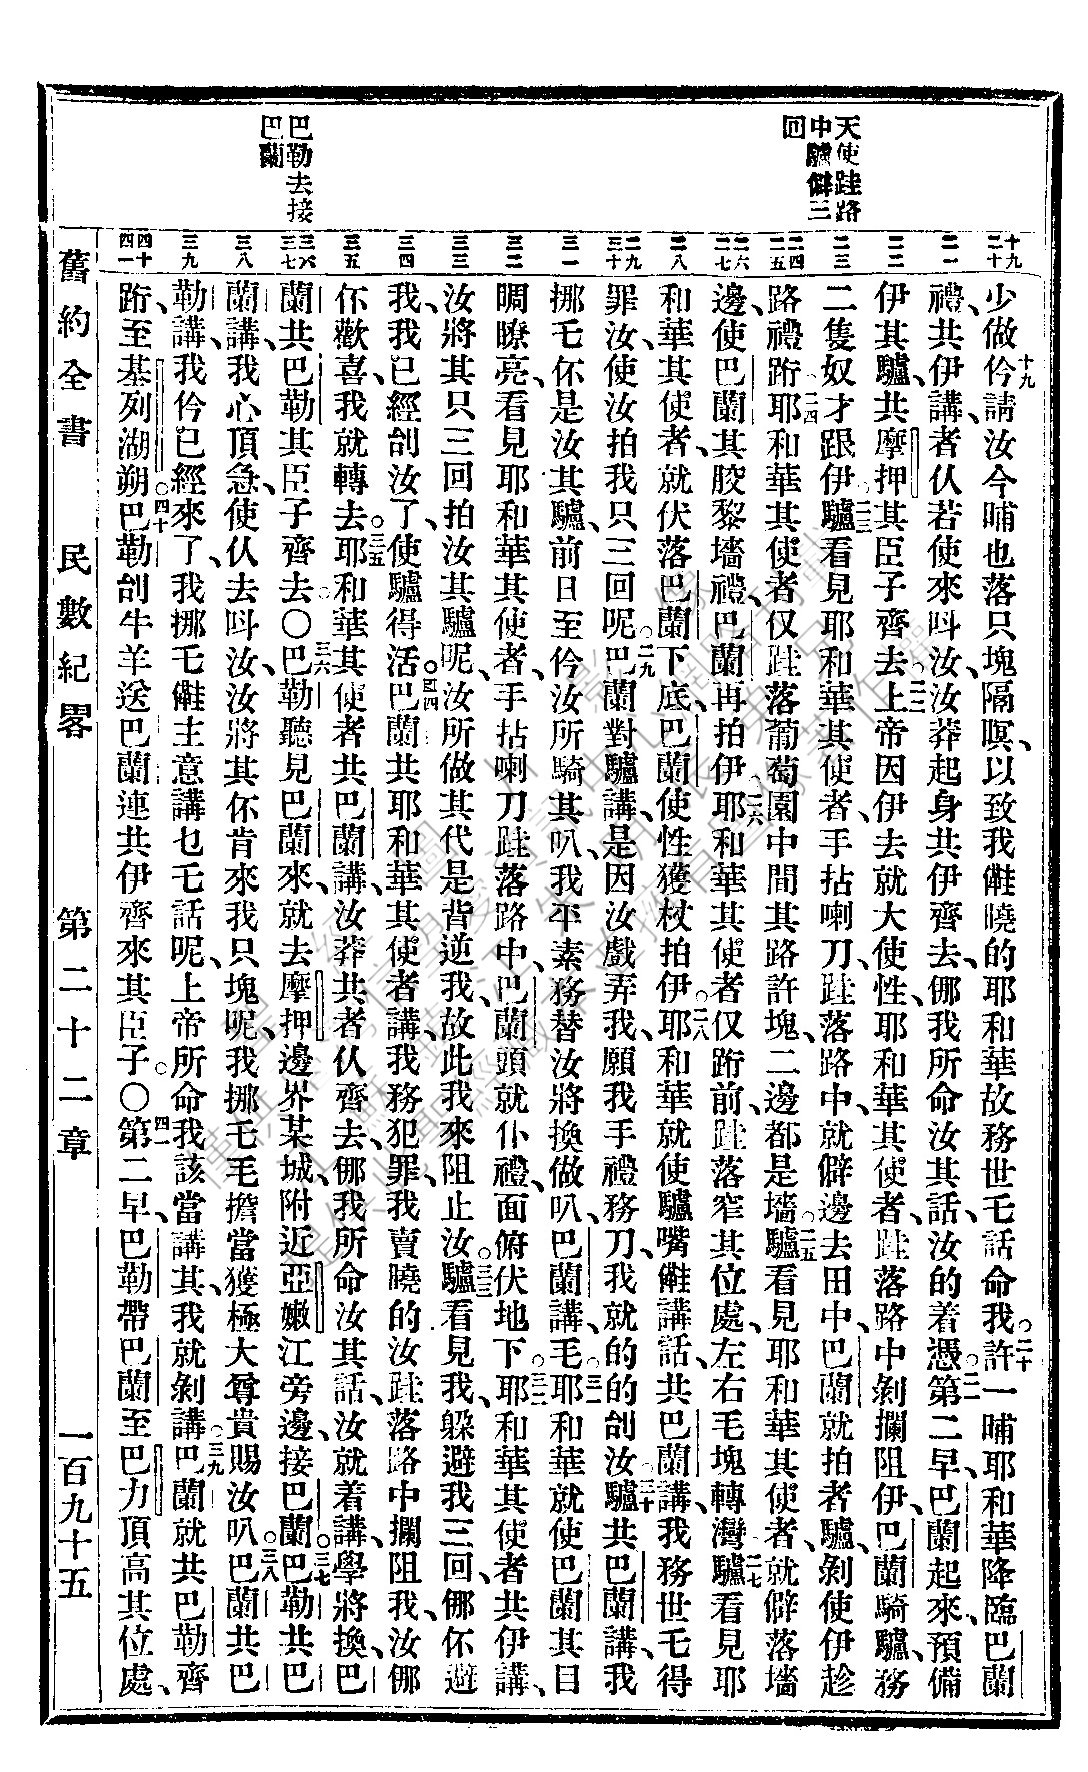 天使跬路
中驢僻三
回
巴勒去接
巴蘭
十九 二十
二一
二二
二三
二四 二五
二六 二七
二八
二九 三十
三一
三二
三三
三四
三五
三六 三七
三八
三九
四十 四一
少做伶請汝今晡也落只塊隔暝、以致我僱曉的耶和華故務世乇話命我許。一晡耶和華降臨巴蘭
禮、共伊講、者仈若使來呌汝、汝莽起身共伊齊去、㑚我所命汝其話、汝的着憑。第二早、巴蘭起來、預備
伊其驢、共摩押其臣子齊去。上帝因伊去就大使性、耶和華其使者、跬落路中剝攔阻伊、巴蘭騎驢、務
二隻奴才跟伊。驢看見耶和華其使者、手拈喇刀、跬落路中、就僻邊去田中、巴蘭就拍者驢、剝使伊趁
路禮跔。耶和華其使者仅跬落葡萄園中間其路許塊、二邊都是墻。驢看見耶和華其使者、就僻落墻
邊、使巴蘭其骹黎墻禮、巴蘭再拍伊。耶和華其使者仅跔前、跬落窄其位處、左右毛塊轉灣。驢看見耶
和華其使者、就伏落巴蘭下底、巴蘭使性獲杖拍伊。耶和華就使驢嘴僱講話、共巴蘭講、我務世乇得
罪汝、使汝拍我只三回呢。巴蘭對驢講、是因汝戲弄我、願我手禮務刀、我就的的刣汝。驢共巴蘭講、我
挪乇伓是汝其驢、前日至伶汝所騎其叭、我平素務替汝將換做叭、巴蘭講、毛。耶和華就使巴蘭其目
睭瞭亮、看見耶和華其使者、手拈喇刀跬落路中、巴蘭頭就仆禮、面俯伏地下。耶和華其使者共伊講、
汝將其只三回拍汝其驢呢、汝所做其代是背逆我、故此我來阻止汝。驢看見我、躲避我三回、㑚伓避
我、我已經刣汝了、使驢得活。巴蘭共耶和華其使者講、我務犯罪、我賣曉的汝跬落路中攔阻我、汝㑚
伓歡喜、我就轉去。耶和華其使者共巴蘭講、汝莽共者仈齊去、㑚我所命汝其話、汝就着講、學將換、巴
蘭共巴勒其臣子齊去。〇巴勒聽見巴蘭來、就去摩押邊界某城、附近亞嫩江旁邊、接巴蘭。巴勒共巴
蘭講、我心頂急、使仈去呌汝、汝將其伓肯來我只塊呢、我挪乇毛擔當獲極大尊貴賜汝叭。巴蘭共巴
勒講、我伶已經來了、我挪乇僱主意講乜乇話呢、上帝所命我該當講其、我就剝講。巴蘭就共巴勒齊
跔至基列湖朔。巴勒刣牛羊送巴蘭連共伊齊來其臣子。〇第二早、巴勒帶巴蘭至巴力頂高其位處、
舊約全書 民數紀畧 第二十二章 一百九十五